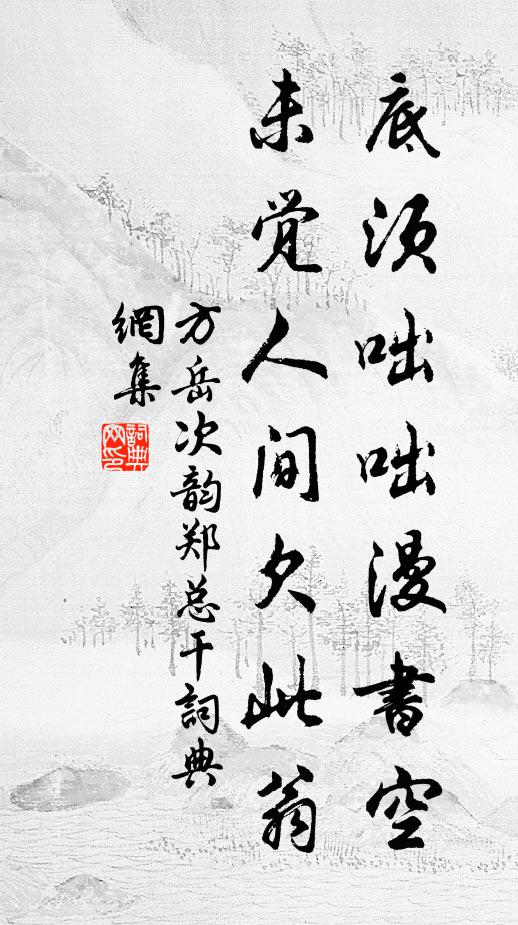 底须咄咄漫書空
未觉人间欠此翁
方岳次韵郑总干詞典
網集
詞典网印